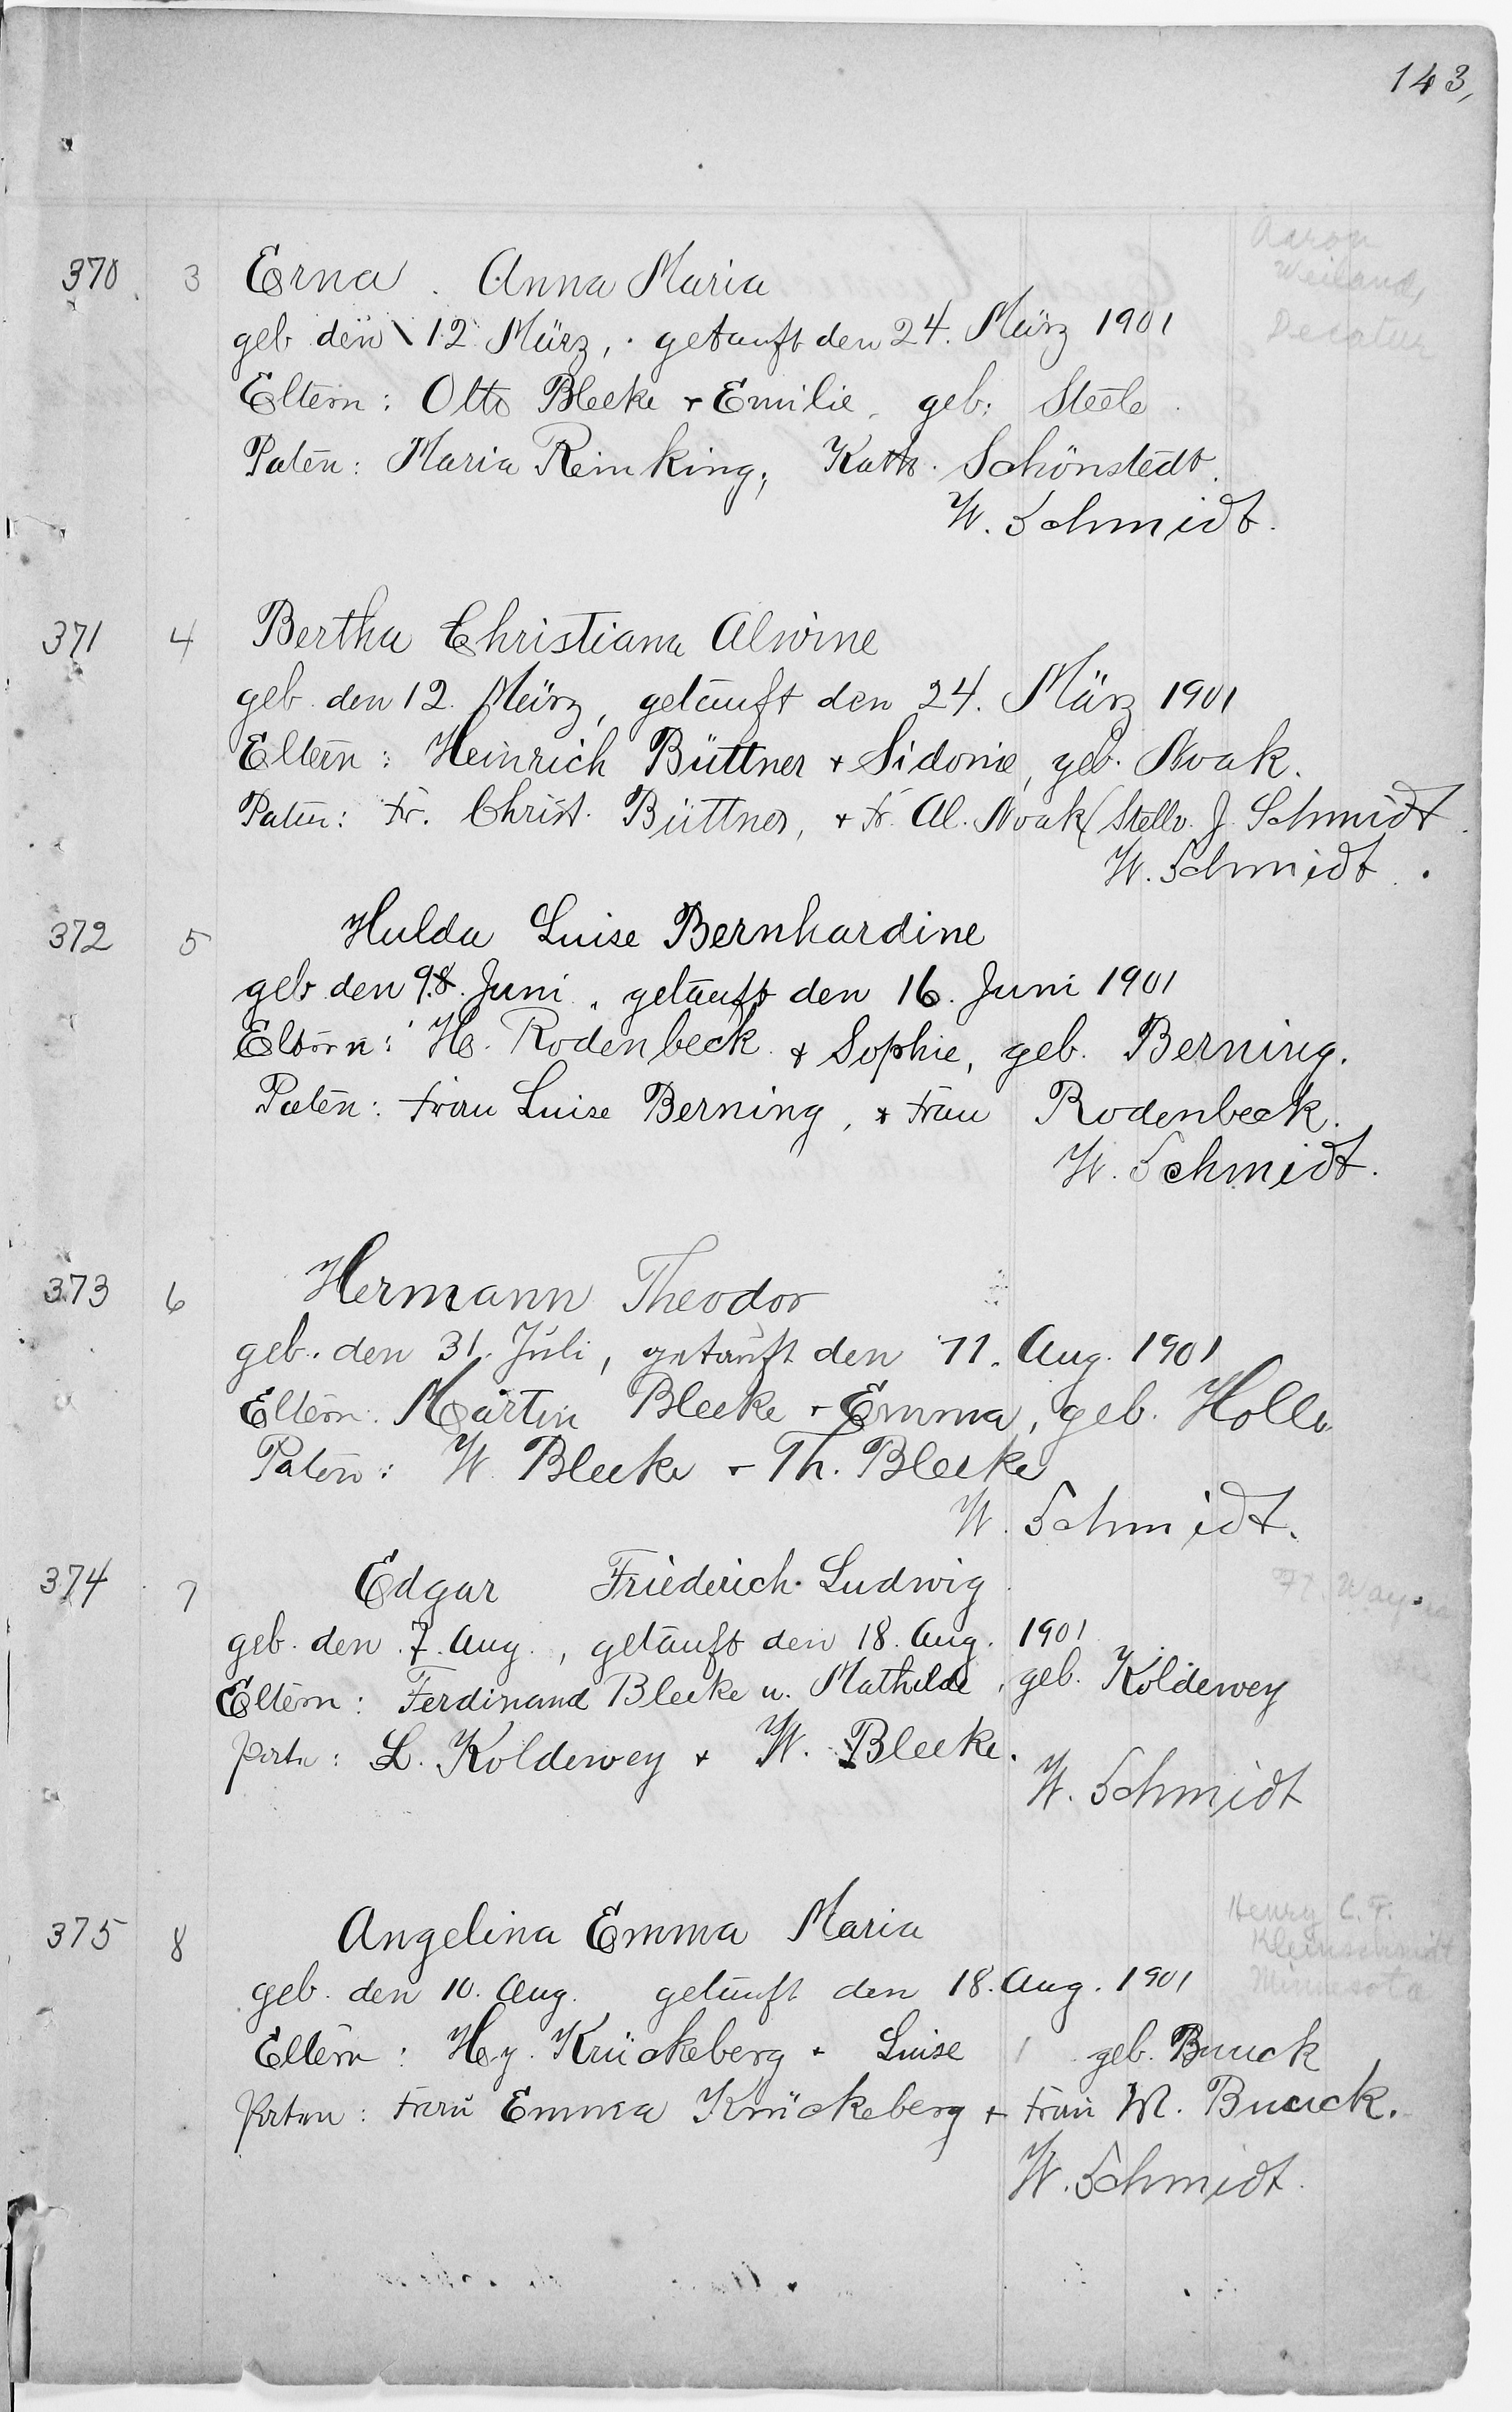 143,
370 3 Erna Anna Maria
Aaron
Weiland,
Decatur
geb den 12 März, getauft den 24. März 1901
Eltern: Otto Bleeke + Emilie, geb: Steele.
Paten: Maria Reinking, Kath. Schönstedt.
W. Schmidt.
371 4 Bertha Christiana Alwine
geb. den 12. März, getauft den 24. März 1901
Eltern: Heinrich Büttner + Sidonie, geb. Noak.
Paten: Fr. Christ. Büttner, + Fr. Al. Noak (Stellv. J. Schmidt
W. Schmidt.
372 5 Hulda Luise Bernhardine
geb den 9. Juni, getauft den 16. Juni 1901
Eltern: He. Rodenbeck + Sophie, geb. Berning.
Paten: Frau Luise Berning, + Frau Rodenbeck.
W. Schmidt.
373 6 Hermann Theodor
geb. den 31. Juli, getauft den 11. Aug. 1901
Eltern: Martin Bleeke + Emma, geb. Holle
Paten: W. Bleeke + Th. Bleeke
W. Schmidt.
374 7 Edgar Friederich Ludwig
Ft. Wayne
geb. den 7. Aug., getauft den 18. Aug. 1901
Eltern: Ferdinand Bleeke u. Mathilde, geb. Koldewey
Patn: L. Koldewey + W. Bleeke.
W. Schmidt
375 8 Angelina Emma Maria
Henry C. F.
Kleinschmidt
Minnesota
geb. den 10. Aug. getauft den 18. Aug. 1901
Eltern: Hy. Krückeberg + Luise, geb. Buuck
Paten: Frau Emma Krückeberg + Frau M. Buuck.
W. Schmidt.